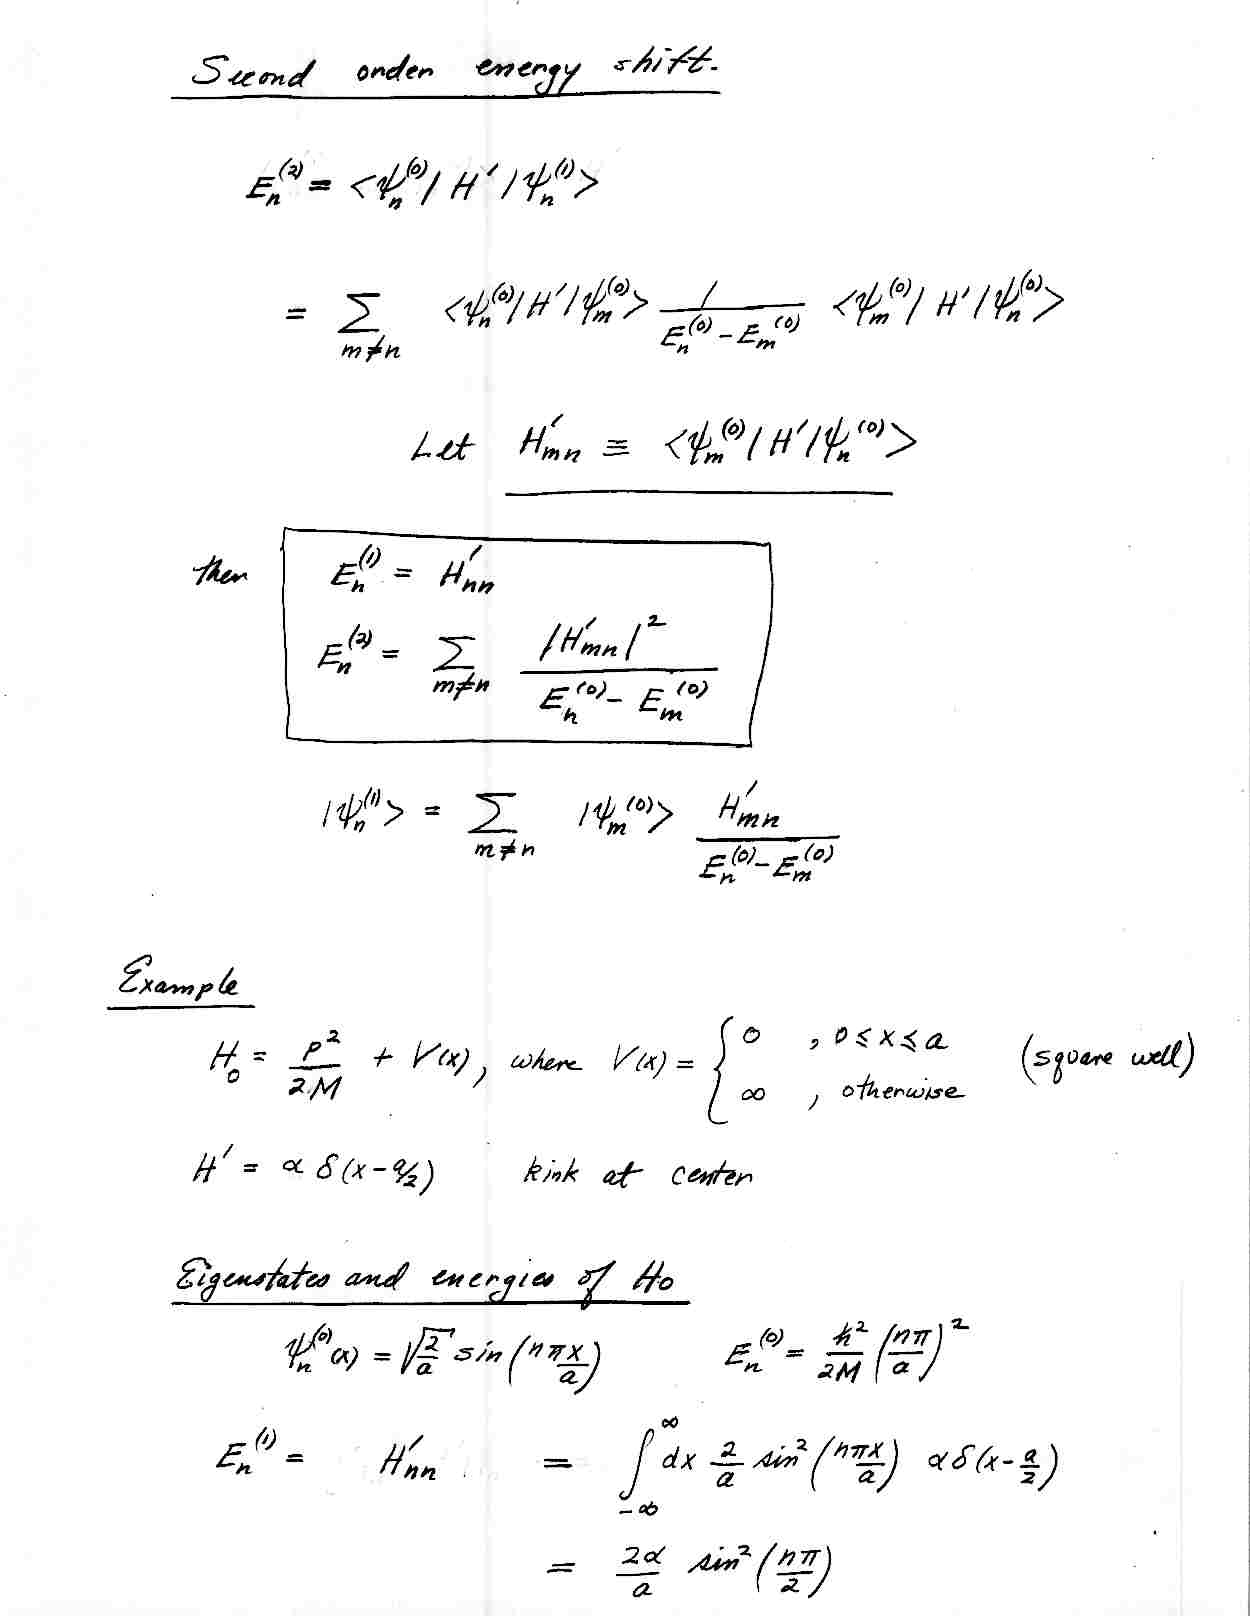 Second order energy shift.
Eₙ⁽²⁾ = <ψₙ⁽⁰⁾| H′ |ψₙ⁽¹⁾>
= ∑_{m≠n} <ψₙ⁽⁰⁾|H′|ψₘ⁽⁰⁾> 1/(Eₙ⁽⁰⁾ − Eₘ⁽⁰⁾) <ψₘ⁽⁰⁾| H′ |ψₙ⁽⁰⁾>
Let H′ₘₙ ≡ <ψₘ⁽⁰⁾| H′ |ψₙ⁽⁰⁾>
then Eₙ⁽¹⁾ = H′ₙₙ
Eₙ⁽²⁾ = ∑_{m≠n} |H′ₘₙ|² / (Eₙ⁽⁰⁾ − Eₘ⁽⁰⁾)
|ψₙ⁽¹⁾> = ∑_{m≠n} |ψₘ⁽⁰⁾> H′ₘₙ / (Eₙ⁽⁰⁾ − Eₘ⁽⁰⁾)
Example
H₀ = p²/2M + V(x), where V(x) = { 0 , 0 ≤ x ≤ a (square well)
∞ , otherwise
H′ = α δ(x − a/2) kink at center
Eigenstates and energies of H₀
ψₙ⁽⁰⁾(x) = √(2/a) sin(nπx/a) Eₙ⁽⁰⁾ = ℏ²/2M (nπ/a)²
Eₙ⁽¹⁾ = H′ₙₙ = ∫_{−∞}^{∞} dx 2/a sin²(nπx/a) αδ(x − a/2)
= 2α/a sin²(nπ/2)